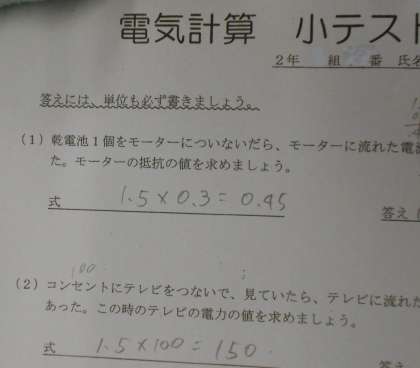 電気計算 小テスト
2年 組 番 氏名
答えには、単位も必ず書きましょう。
(1)乾電池1個をモーターについないだら、モーターに流れた電流
た。モーターの抵抗の値を求めましょう。
式 1.5×0.3=0.45
答え
100
(2)コンセントにテレビをつないで、見ていたら、テレビに流れた
あった。この時のテレビの電力の値を求めましょう。
式 1.5×100=150
答え